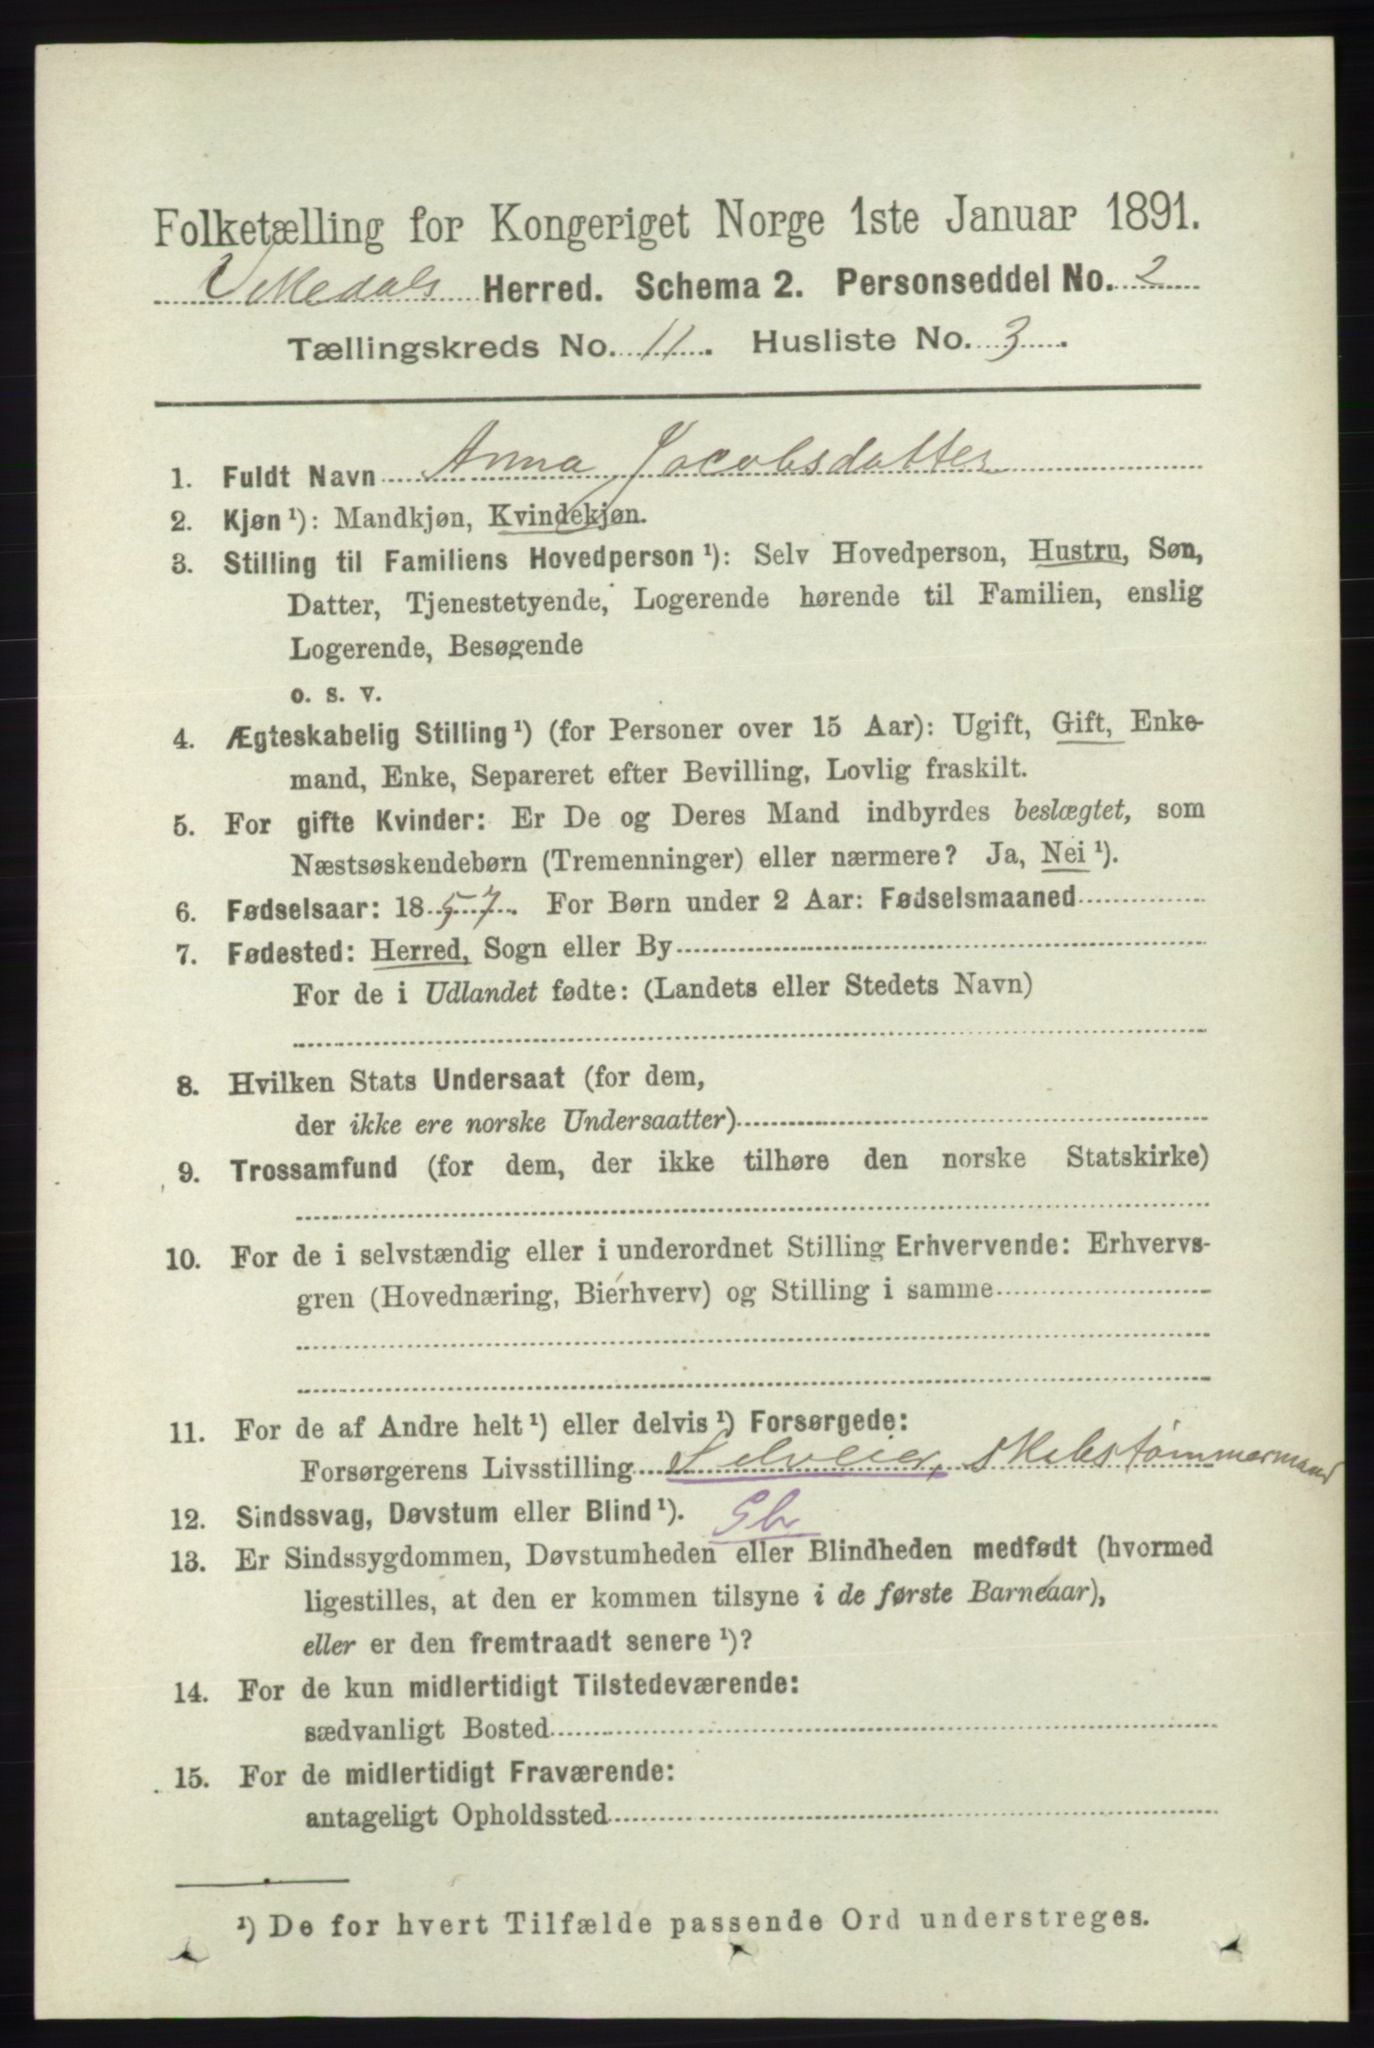 Folketælling for Kongeriget Norge 1ste Januar 1891.
Vikedals Herred. Schema 2. Personseddel No. 2
Tællingskreds No. 11. Husliste No. 3.
1. Fuldt Navn Anna Jacobsdatter
2. Kjøn ¹): Mandkjøn, Kvindekjøn.
3. Stilling til Familiens Hovedperson ¹): Selv Hovedperson, Hustru, Søn,
Datter, Tjenestetyende, Logerende hørende til Familien, enslig
Logerende, Besøgende
o. s. v.
4. Ægteskabelig Stilling ¹) (for Personer over 15 Aar): Ugift, Gift, Enke-
mand, Enke, Separeret efter Bevilling, Lovlig fraskilt.
5. For gifte Kvinder: Er De og Deres Mand indbyrdes beslægtet, som
Næstsøskendebørn (Tremenninger) eller nærmere? Ja, Nei ¹).
6. Fødselsaar: 1857. For Børn under 2 Aar: Fødselsmaaned
7. Fødested: Herred, Sogn eller By
For de i Udlandet fødte: (Landets eller Stedets Navn)
8. Hvilken Stats Undersaat (for dem,
der ikke ere norske Undersaatter)
9. Trossamfund (for dem, der ikke tilhøre den norske Statskirke)
10. For de i selvstændig eller i underordnet Stilling Erhvervende: Erhvervs-
gren (Hovednæring, Bierhverv) og Stilling i samme
11. For de af Andre helt ¹) eller delvis ¹) Forsørgede:
Forsørgerens Livsstilling Selveier, Skibstømmermand
12. Sindssvag, Døvstum eller Blind ¹). Gbr
13. Er Sindssygdommen, Døvstumheden eller Blindheden medfødt (hvormed
ligestilles, at den er kommen tilsyne i de første Barneaar),
eller er den fremtraadt senere ¹)?
14. For de kun midlertidigt Tilstedeværende:
sædvanligt Bosted
15. For de midlertidigt Fraværende:
antageligt Opholdssted
¹) De for hvert Tilfælde passende Ord understreges.